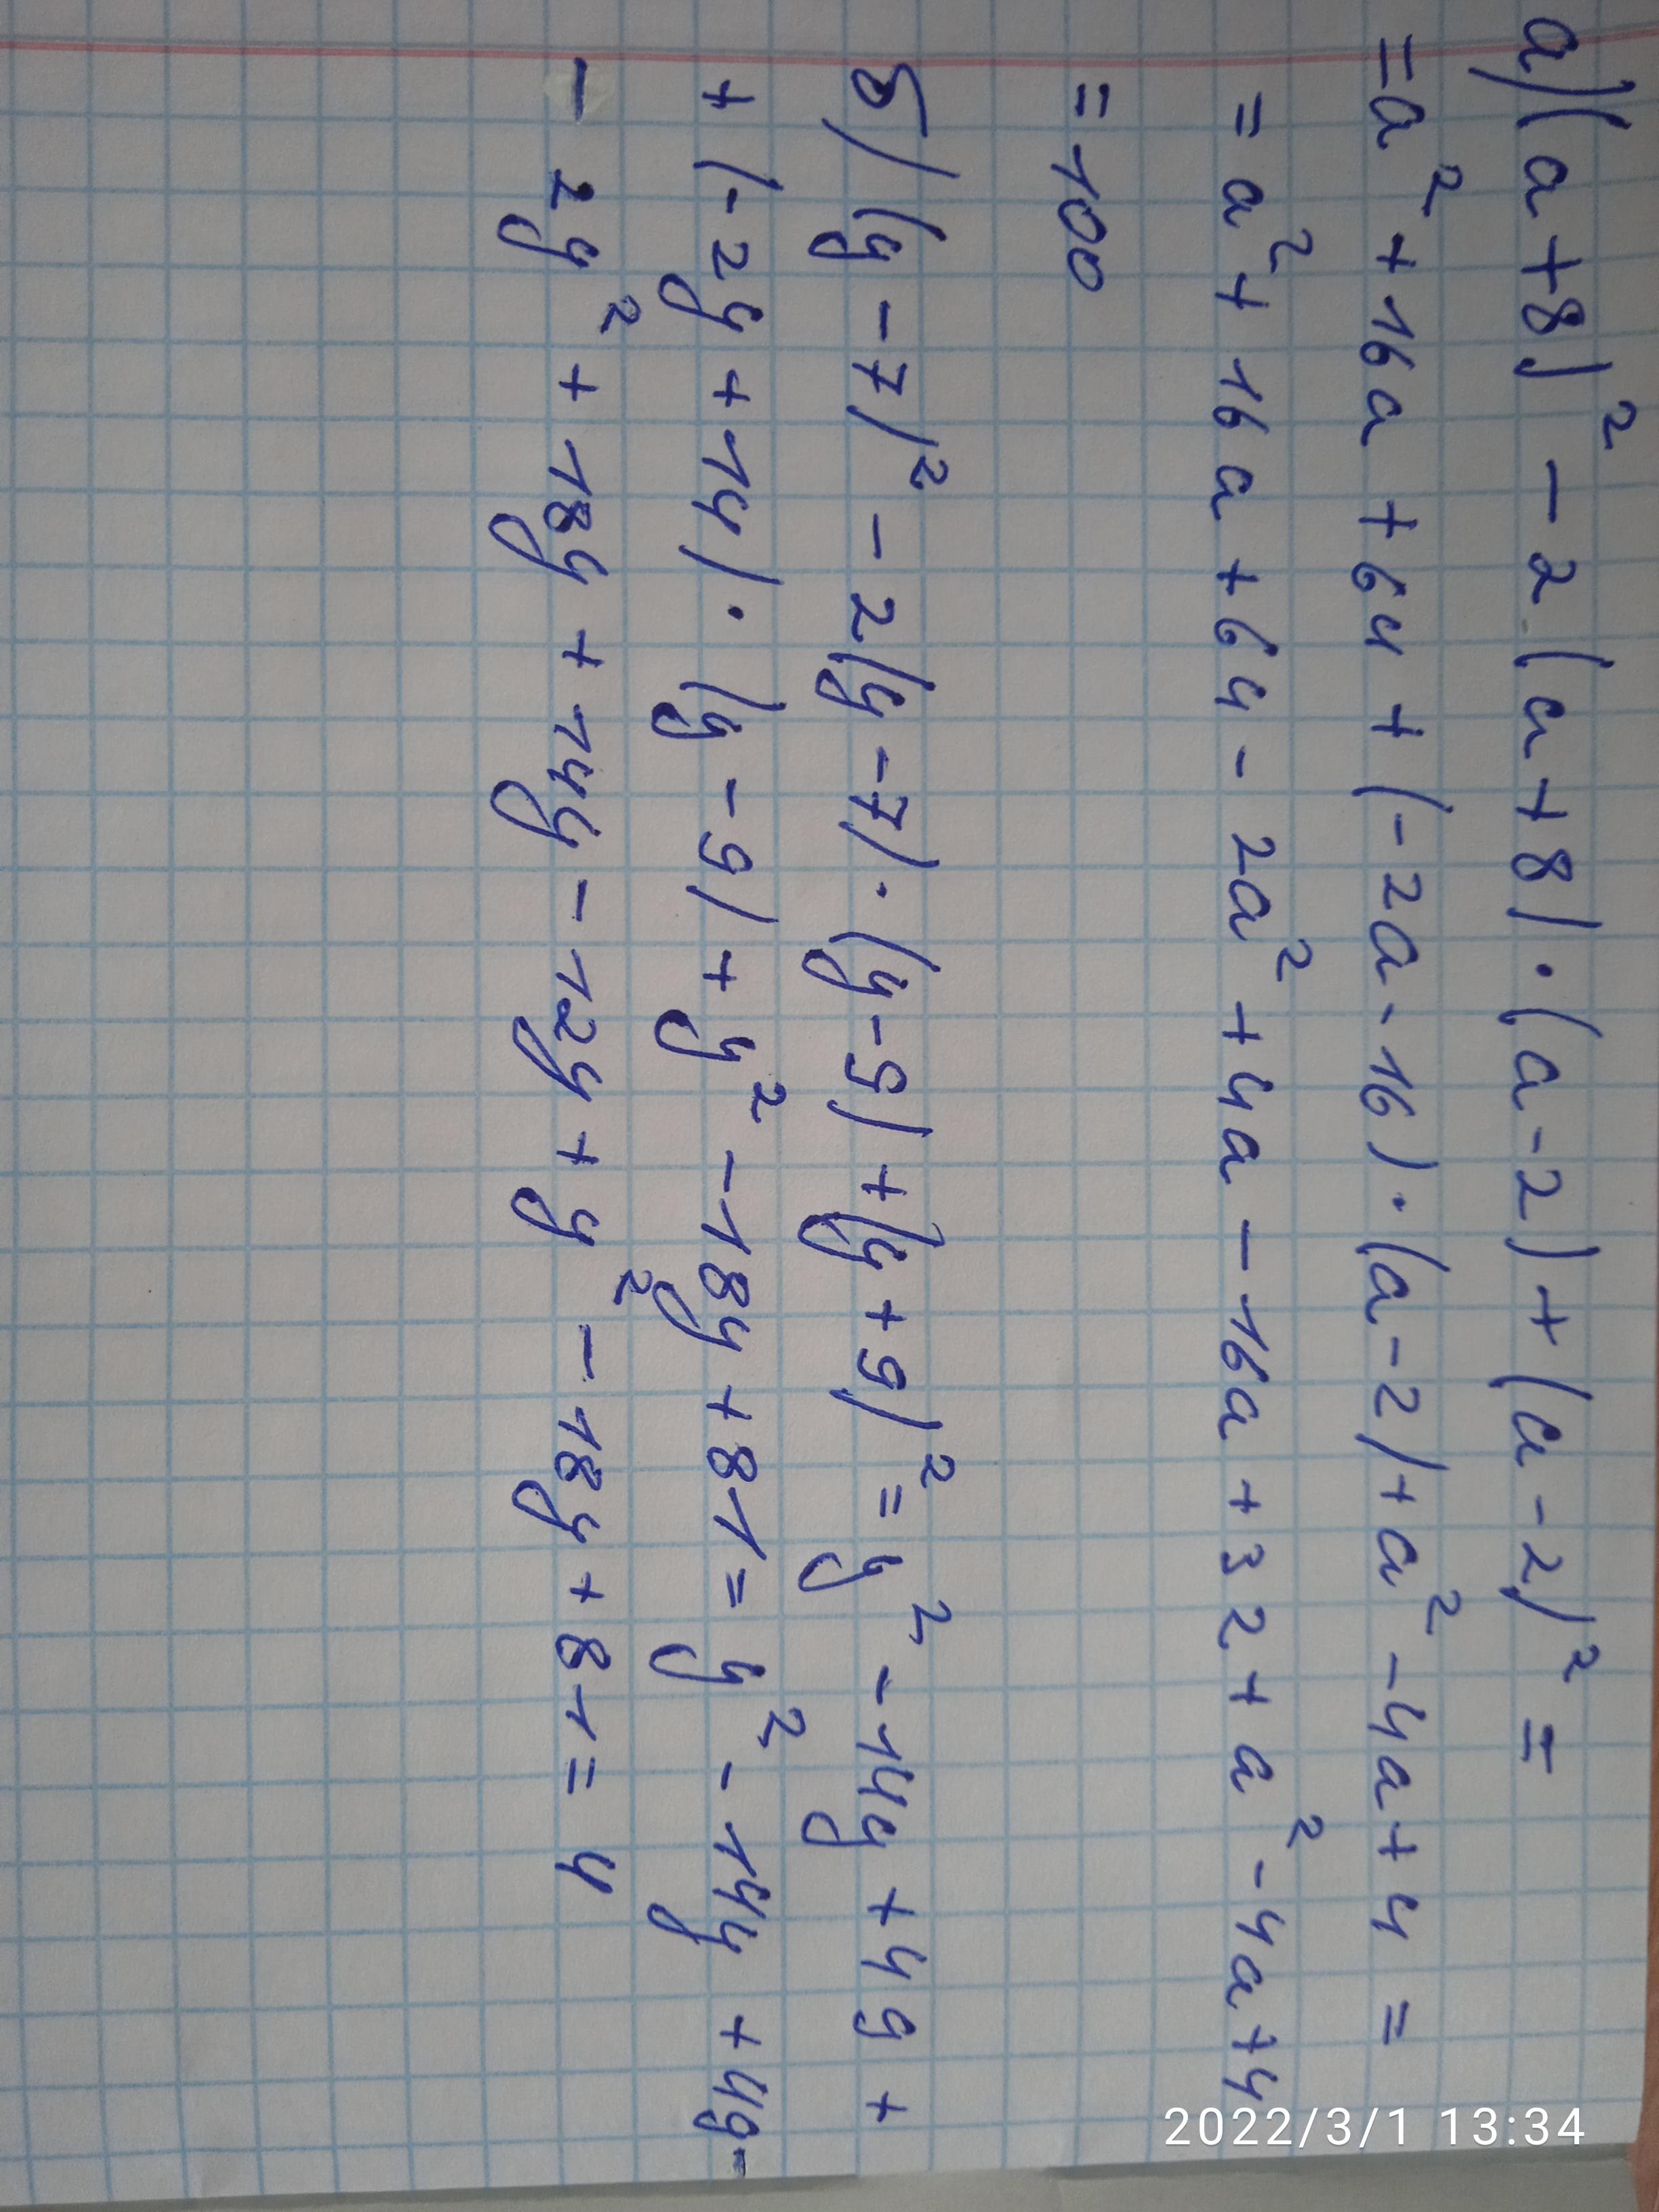 а) (a+8)² - 2(a+8)·(a-2)+(a-2)² =
= a² + 16a + 64 + (-2a-16)·(a-2)+a² -4a+4 =
= a² + 16a + 64 - 2a² + 4a - 16a + 32 + a² - 4a+4
= 100
б) (y-7)² - 2(y-7)·(y-9)+(y+9)² = y² - 14y + 49 +
+ (-2y+14)·(y-9)+y² - 18y + 81 = y² - 14y + 49 -
- 2y² + 18y + 14y - 12y + y² - 18y + 81 = 4
2022/3/1 13:34